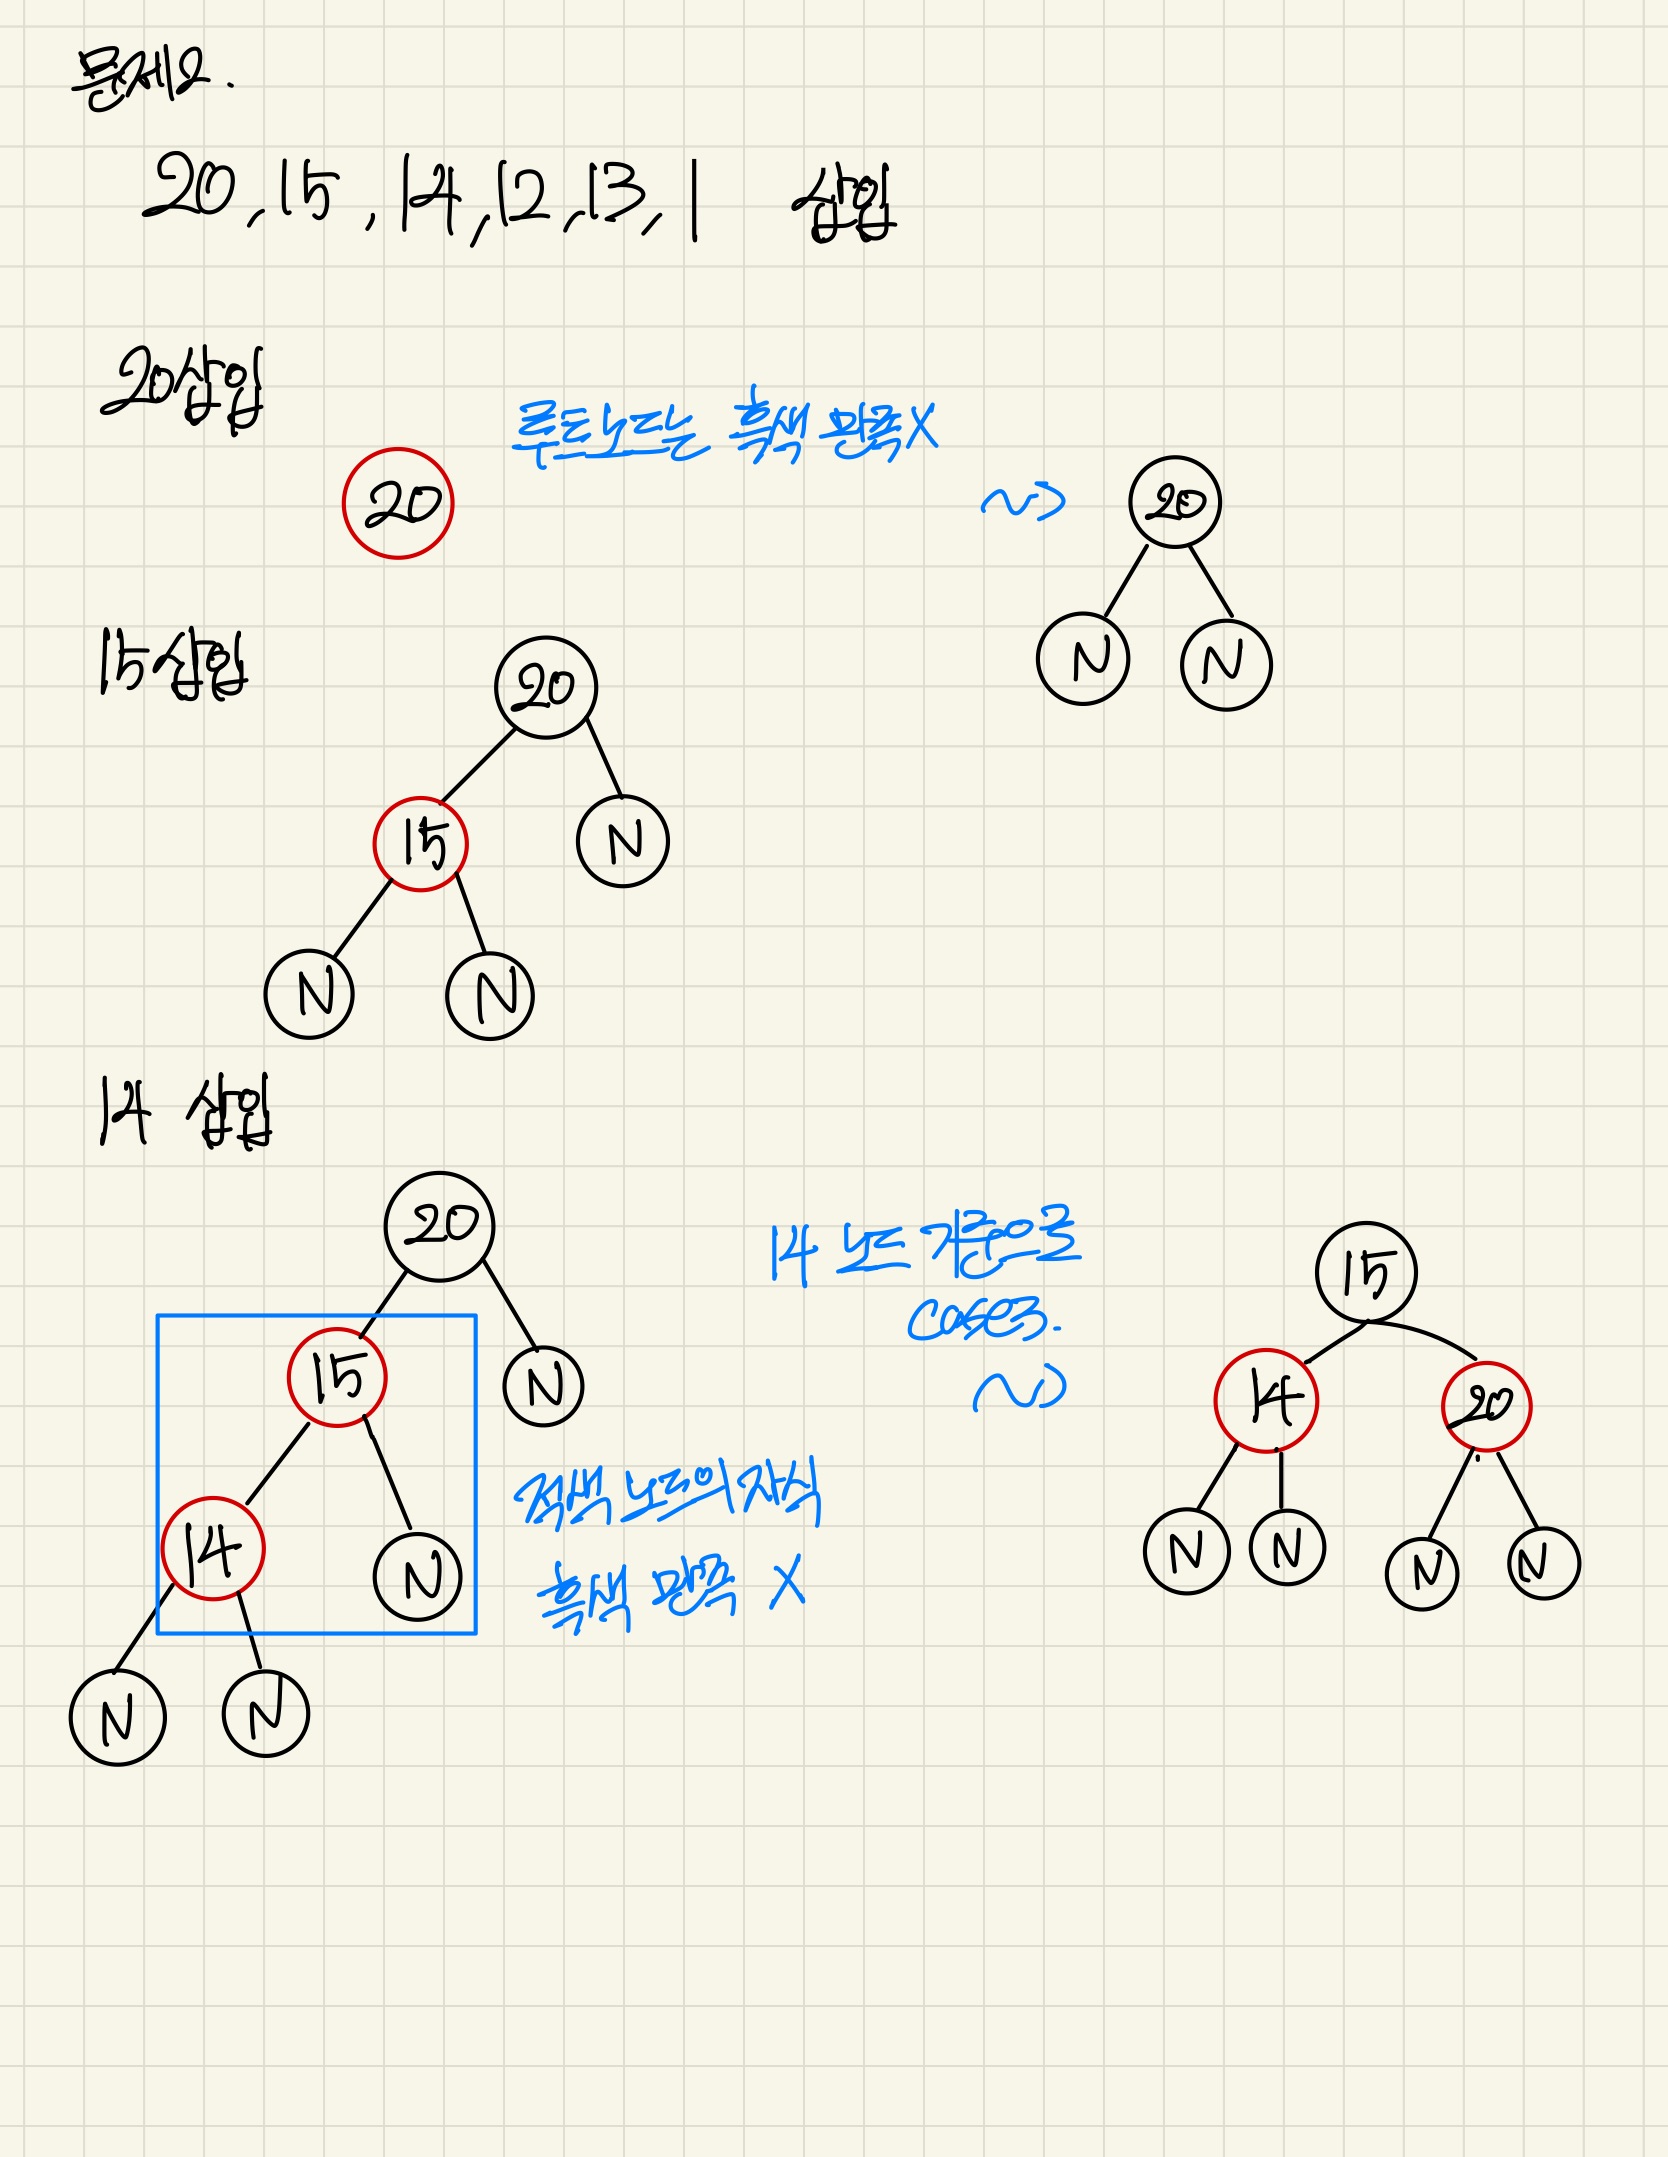 문제2.
20, 15, 14, 12, 13, 1 삽입
20삽입
루트노드는 흑색 만족X
20
~>
20
N N
15삽입
20
15 N
N N
14 삽입
20
15 N
14 N
N N
적색 노드의 자식
흑색 만족 X
14 노드 기준으로
case3.
~>
15
14 20
N N N N